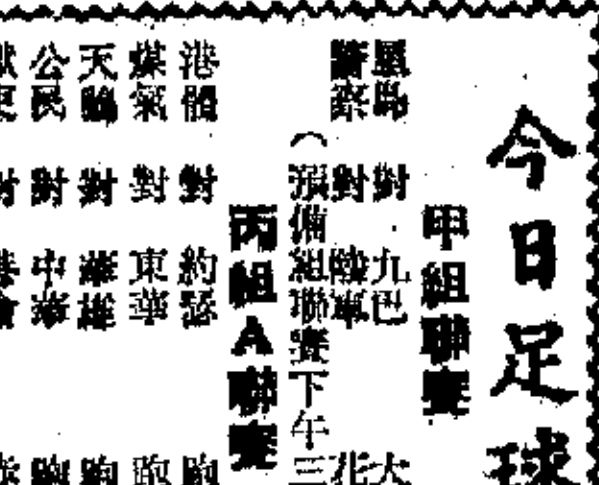 今日足球
甲組聯賽
對 九巴 大
警察 對 陸軍 花
（預備組聯賽下午三
丙組A聯賽
港體 對 約瑟 跑
煤氣 對 東華 跑
天 對 華雄 跑
公民 對 中華 跑
對 港會